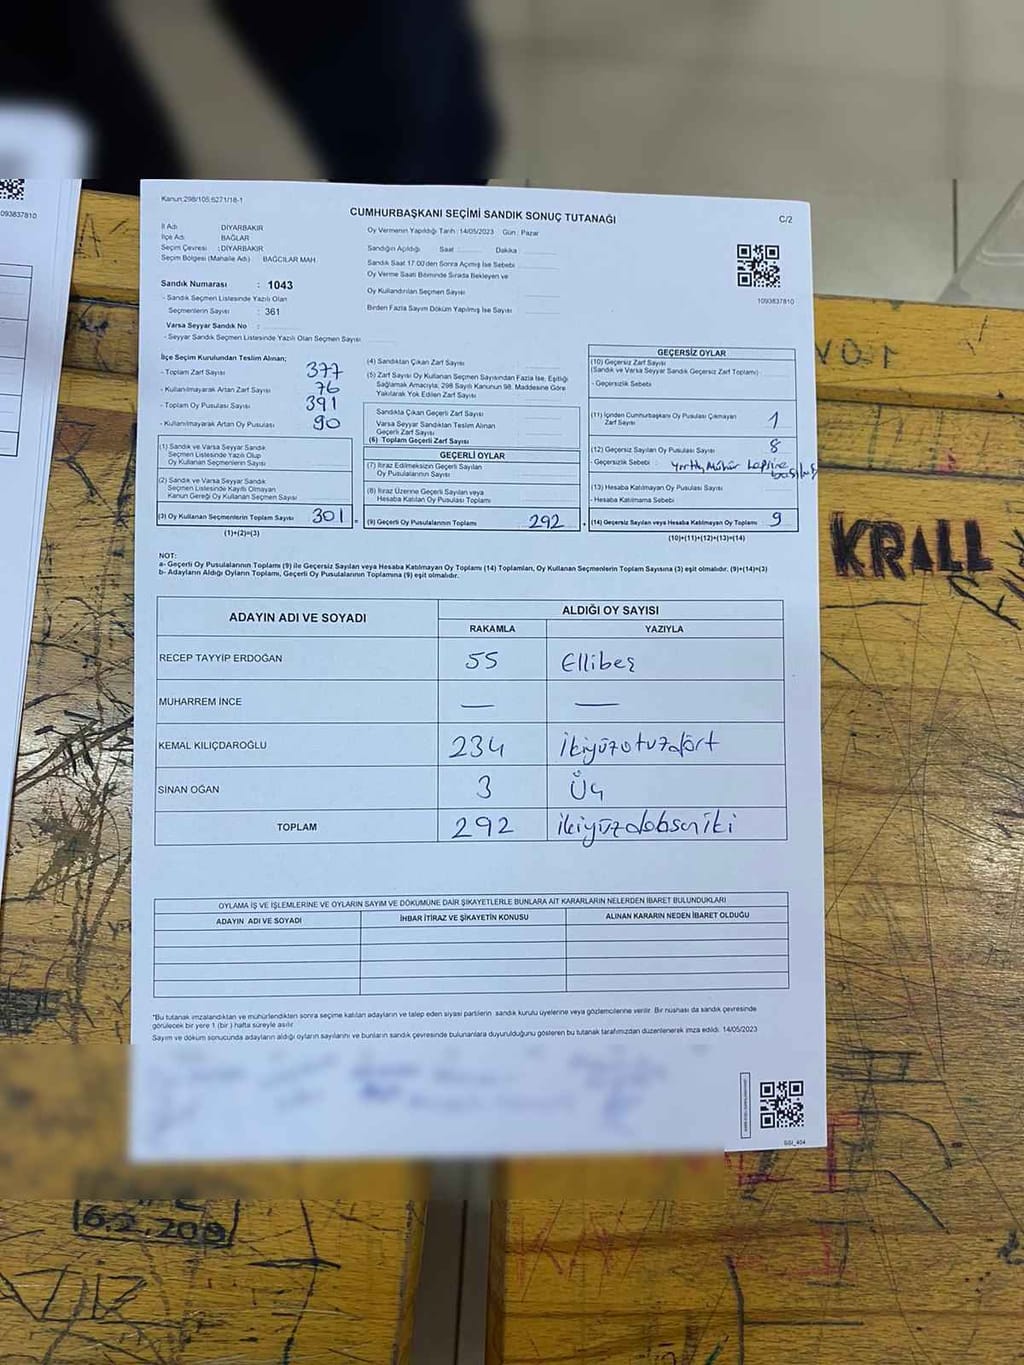 Kanun:298/105;6271/18-1
CUMHURBAŞKANI SEÇİMİ SANDIK SONUÇ TUTANAĞI
C/2
İl Adı DİYARBAKIR
İlçe Adı BAĞLAR
Seçim Çevresi : DİYARBAKIR
Seçim Bölgesi (Mahalle Adı) BAĞCILAR MAH.
Sandık Numarası : 1043
- Sandık Seçmen Listesinde Yazılı Olan
Seçmenlerin Sayısı : 361
Varsa Seyyar Sandık No :
- Seyyar Sandık Seçmen Listesinde Yazılı Olan Seçmen Sayısı
Oy Vermenin Yapıldığı Tarih : 14/05/2023 Gün : Pazar
Sandığın Açıldığı Saat : Dakika :
Sandık Saat 17.00'den Sonra Açılmış İse Sebebi
Oy Verme Saati Bitiminde Sırada Bekleyen ve
Oy Kullandırılan Seçmen Sayısı
Birden Fazla Sayım Döküm Yapılmış İse Sayısı
1093837810
1093837810
İlçe Seçim Kurulundan Teslim Alınan;
- Toplam Zarf Sayısı 377
- Kullanılmayarak Artan Zarf Sayısı 76
- Toplam Oy Pusulası Sayısı 391
- Kullanılmayarak Artan Oy Pusulası 90
(1) Sandık ve Varsa Seyyar Sandık
Seçmen Listesinde Yazılı Olup
Oy Kullanan Seçmenlerin Sayısı
(2) Sandık ve Varsa Seyyar Sandık
Seçmen Listesinde Kayıtlı Olmayan
Kanun Gereği Oy Kullanan Seçmen Sayısı
(3) Oy Kullanan Seçmenlerin Toplam Sayısı 301
(1)+(2)=(3)
=
(4) Sandıktan Çıkan Zarf Sayısı
(5) Zarf Sayısı Oy Kullanan Seçmen Sayısından Fazla İse, Eşitliği
Sağlamak Amacıyla; 298 Sayılı Kanunun 98. Maddesine Göre
Yakılarak Yok Edilen Zarf Sayısı
Sandıkta Çıkan Geçerli Zarf Sayısı
Varsa Seyyar Sandıktan Teslim Alınan
Geçerli Zarf Sayısı
(6) Toplam Geçerli Zarf Sayısı
GEÇERLİ OYLAR
(7) İtiraz Edilmeksizin Geçerli Sayılan
Oy Pusulalarının Sayısı
(8) İtiraz Üzerine Geçerli Sayılan veya
Hesaba Katılan Oy Pusulası Toplamı
(9) Geçerli Oy Pusulalarının Toplamı 292
GEÇERSİZ OYLAR
(10) Geçersiz Zarf Sayısı
(Sandık ve Varsa Seyyar Sandık Geçersiz Zarf Toplamı)
- Geçersizlik Sebebi
(11) İçinden Cumhurbaşkanı Oy Pusulası Çıkmayan
Zarf Sayısı 1
(12) Geçersiz Sayılan Oy Pusulası Sayısı 8
- Geçersizlik Sebebi :
(13) Hesaba Katılmayan Oy Pusulası Sayısı
- Hesaba Katılmama Sebebi
(14) Geçersiz Sayılan veya Hesaba Katılmayan Oy Toplamı 9
(10)+(11)+(12)+(13)=(14)
NOT:
a- Geçerli Oy Pusulalarının Toplamı (9) ile Geçersiz Sayılan veya Hesaba Katılmayan Oy Toplamı (14) Toplamları, Oy Kullanan Seçmenlerin Toplam Sayısına (3) eşit olmalıdır. (9)+(14)=(3)
b- Adayların Aldığı Oyların Toplamı, Geçerli Oy Pusulalarının Toplamına (9) eşit olmalıdır.
ADAYIN ADI VE SOYADI
ALDIĞI OY SAYISI
RAKAMLA YAZIYLA
RECEP TAYYİP ERDOĞAN 55 Ellibeş
MUHARREM İNCE — —
KEMAL KILIÇDAROĞLU 234 İkiyüzotuzdört
SİNAN OĞAN 3 Üç
TOPLAM 292 ikiyüzdoksaniki
OYLAMA İŞ VE İŞLEMLERİNE VE OYLARIN SAYIM VE DÖKÜMÜNE DAİR ŞİKAYETLERLE BUNLARA AİT KARARLARIN NELERDEN İBARET BULUNDUKLARI
ADAYIN ADI VE SOYADI İHBAR İTİRAZ VE ŞİKAYETİN KONUSU ALINAN KARARIN NEDEN İBARET OLDUĞU
*Bu tutanak imzalandıktan ve mühürlendikten sonra seçime katılan adayların ve talep eden siyasi partilerin sandık kurulu üyelerine veya gözlemcilerine verilir. Bir nüshası da sandık çevresinde
görülecek bir yere 1 (bir) hafta süreyle asılır.
Sayım ve döküm sonucunda adayların aldığı oyların sayılarını ve bunların sandık çevresinde bulunanlara duyurulduğunu gösteren bu tutanak tarafımızdan düzenlenerek imza edildi. 14/05/2023
KRALL
6.2.209